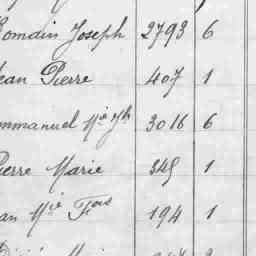 Romain Joseph 2793 6
Jean Pierre 407 1
Emmanuel Mie Jh 3016 6
Pierre Marie 345 1
Jean Mie Fçois 194 1